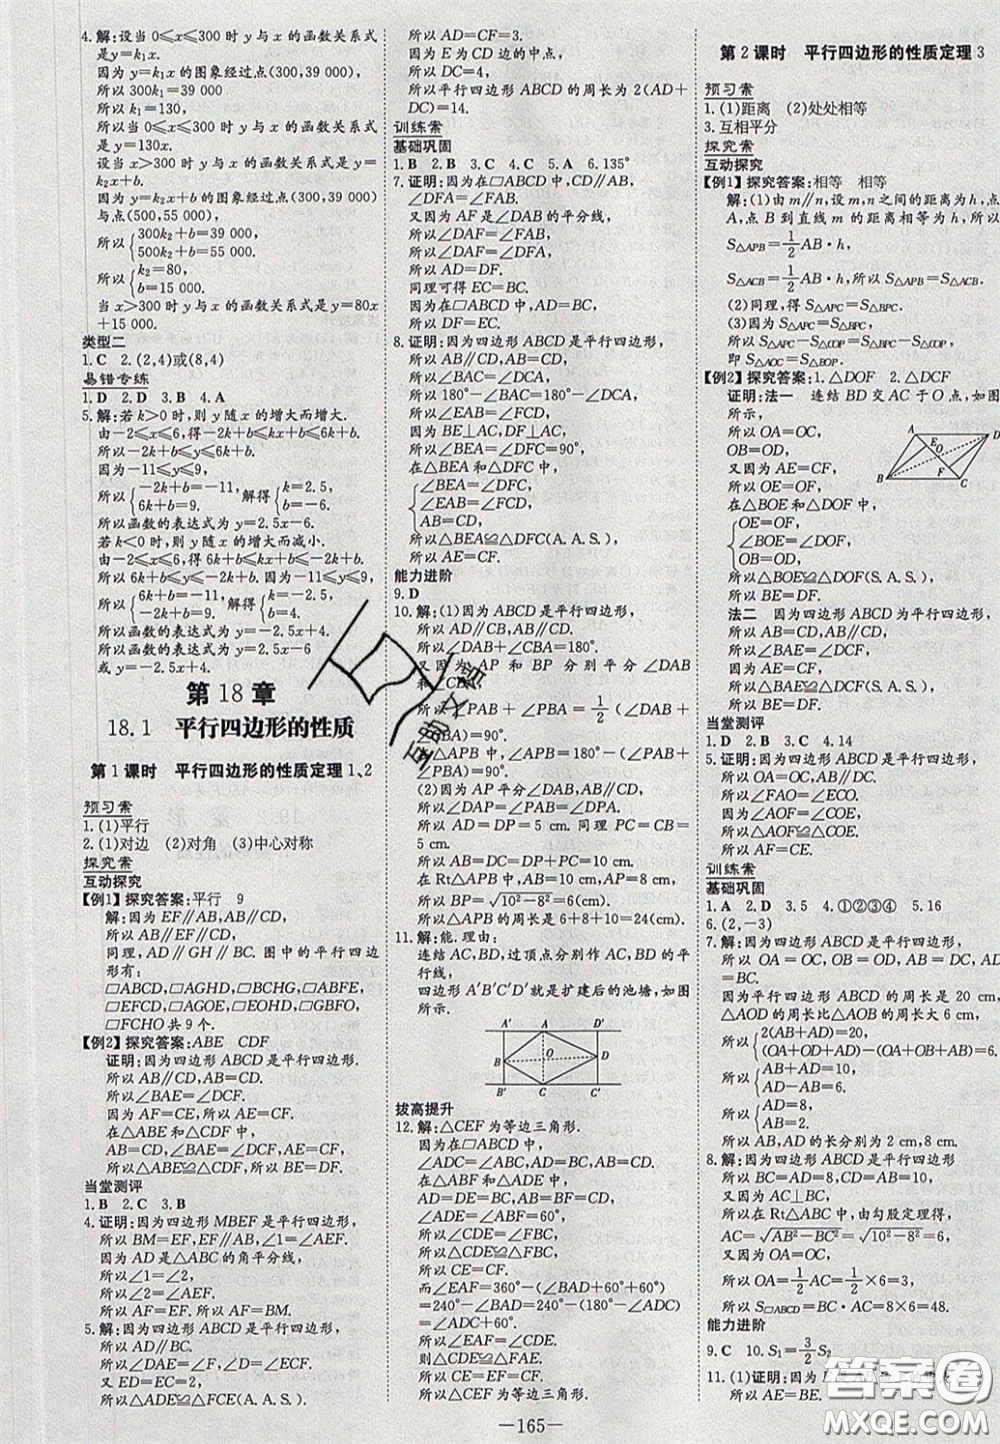 4.解:设当0≤x≤300时y与x的函数关系式
是y=k₁x.
因为y=k₁x的图象经过点(300,39 000)
所以300k₁=39 000
所以k₁=130,
所以当0≤x≤300时y与x的函数关系式
是y=130x.
设当x>300时y与x的函数关系式是y=
k₂x+b,
因为y=k₂x+b的图象经过点(300,39 000)
与点(500,55 000),
所以{300k₂+b=39 000,
500k₂+b=55 000.
所以{k₂=80,
b=15 000.
当x>300时y与x的函数关系式是y=80x
+15 000.
类型二
1.C 2.(2,4)或(8,4)
易错专练
1.D 2.D 3.B 4.A
5.解:若k>0时,则y随x的增大而增大.
由-2≤x≤6,得-2k+b≤kx+b≤6k+b.
所以-2k+b≤y≤6k+b.
因为-11≤y≤9,
所以{-2k+b=-11, 解得{k=2.5,
6k+b=9. b=-6.
所以函数的表达式为y=2.5x-6.
若k<0时,则y随x的增大而减小.
由-2≤x≤6,得6k+b≤kx+b≤-2k+b.
所以6k+b≤y≤-2k+b.因为-11≤y≤9,
所以{-2k+b=9, 解得{k=-2.5,
6k+b=-11. b=4.
所以函数的表达式为y=-2.5x+4.
所以函数的表达式为y=2.5x-6
或y=-2.5x+4.
第18章
18.1 平行四边形的性质
第1课时 平行四边形的性质定理1、2
预习案
1.(1)平行
2.(1)对边 (2)对角 (3)中心对称
探究案
互动探究
【例1】探究答案:平行 9
解:因为EF∥AB,AB∥CD,
所以AB∥EF∥CD.
同理,AD∥GH∥BC.图中的平行四边
形有:
□ABCD,□AGHD,□BCHG,□ABFE,
□EFCD,□AGOE,□EOHD,□GBFO,
□FCHO共9个.
【例2】探究答案:ABE CDF
证明:因为四边形ABCD是平行四边形.
所以AB∥CD,AB=CD.
所以∠BAE=∠DCF.
因为AF=CE,所以AE=CF.
在△ABE和△CDF中,
AB=CD,∠BAE=∠DCF,AE=CF,
所以△ABE≌△CDF,所以BE=DF.
当堂测评
1.B 2.C 3.B
4.证明:因为四边形MBEF是平行四边形,
所以BM=EF,EF∥AB,∠1=∠EFA.
因为AD是△ABC的角平分线,
所以∠1=∠2,
所以∠2=∠EFA,
所以AE=EF,所以AE=BM.
5.解:因为四边形ABCD是平行四边形,
所以AD∥BC.
所以∠DAE=∠F,∠D=∠ECF.
又ED=EC=2,
所以△ADE≌△FCE(A.A.S.).
所以AD=CF=3.
因为E为CD边的中点,
所以DC=4,
所以平行四边形ABCD的周长为2(AD+
DC)=14.
训练案
基础巩固
1.B 2.B 3.C 4.C 5.A 6.135°
7.证明:因为在□ABCD中,CD∥AB,
∠DFA=∠FAB.
又因为AF是∠DAB的平分线,
所以∠DAF=∠FAB,
所以∠DAF=∠DFA,
所以AD=DF.
同理可得EC=BC.
因为在□ABCD中,AD=BC,
所以DF=EC.
8.证明:因为四边形ABCD是平行四边形,
所以AB∥CD,AB=CD,
所以∠BAC=∠DCA,
所以180°-∠BAC=180°-∠DCA,
所以∠EAB=∠FCD,
因为BE⊥AC,DF⊥AC,
所以∠BEA=∠DFC=90°,
在△BEA和△DFC中,
{∠BEA=∠DFC,
∠EAB=∠FCD,
AB=CD,
所以△BEA≌△DFC(A.A.S.),
所以AE=CF.
能力进阶
9.D
10.解:(1)因为ABCD是平行四边形,
所以AD∥CB,AB∥CD.
所以∠DAB+∠CBA=180°.
又因为AP和BP分别平分∠DAB
和∠CBA,
所以∠PAB+∠PBA=1/2(∠DAB+
∠CBA)=90°.
在△APB中,∠APB=180°-(∠PAB+
∠PBA)=90°.
(2)因为AP平分∠DAB,
所以∠DAP=∠PAB=∠DPA.
所以AD=DP=5 cm.同理PC=BC=
5 cm.
所以AB=DC=DP+PC=10 cm.
在Rt△APB中,AB=10 cm,AP=8 cm,
所以BP=√10²-8²=6(cm).
所以△APB的周长为6+8+10=24(cm).
11.解:能.理由:
连结AC,BD,过点分别作AC,BD的平
行线,
四边形A′B′C′D′就是扩建后的池塘,如图
所示.
A′ A D′
B O D
B′ C C′
拔高提升
12.解:△CEF为等边三角形.
因为在□ABCD中,
∠ADC=∠ABC,AB=DC,AD=BC.
在等边三角形ADE和等边三角形ABF中,
AD=DE=BC,AB=BF=AF=CD,
∠ADE=∠ABF=60°,
所以∠CDE=∠FBC,
所以△CDE≌△FBC,
所以CE=CF.
而∠EAF=360°-(∠BAD+60°+60°)
=240°-∠BAD=240°-(180°-∠ADC)
=60°+∠ADC=∠CDE.
所以∠EAF=∠CDE.
则△CDE≌△FAE.
所以EF=CE=CF,
所以△CEF为等边三角形.
第2课时 平行四边形的性质定理3
预习案
1.(1)距离 (2)处处相等
3.互相平分
探究案
互动探究
【例1】探究答案:相等 相等
解:(1)由m∥n,设m,n之间的距离为h,点
A,点B到直线m的距离相等为h,
S△APB=1/2AB·h,
S△ACB=1/2AB·h,所以S△APB=S△ACB.
(2)同理,得S△APC=S△BPC.
(3)因为
所以S△APC-S△COP=S△BPC-S△COP,
即S△AOC=S△BOP.
【例2】探究答案:1.△DOF 2.△DCF
证明:法一 连结BD交AC于O点,如图
所示,
所以OA=OC,
OB=OD,
又因为AE=CF,
所以OE=OF,
在△BOE和△DOF中,
{OE=OF,
∠BOE=∠DOF,
OB=OD,
A D
E O
F
B C
所以△BOE≌△DOF(S.A.S.),
所以BE=DF.
法二 因为四边形ABCD为平行四边形,
所以AB=CD,AB∥CD,
所以∠BAE=∠DCF,
又因为AE=CF,
所以△ABE≌△CDF(S.A.S.),
所以BE=DF.
当堂测评
1.D 2.B 3.C 4.14
5.证明:因为四边形ABCD是平行四边形,
所以OA=OC,OB=OD.
因为∠AOF=∠COE,
所以△AOF≌△COE.
所以AF=CE.
训练案
基础巩固
1.A 2.D 3.5 4.①②③④ 5.16
6.(2,-3)
7.解:因为四边形ABCD是平行四边形,
所以OA=OC,OB=OD,AB=CD,AD
=BC.
因为平行四边形ABCD的周长是20 cm,
△AOD的周长比△AOB的周长大6 cm,
所以{2(AB+AD)=20,
(OA+OD+AD)-(OA+OB+AB)=6.
所以{AB+AD=10,
AD-AB=6.
所以{AD=8,
AB=2.
所以AB,AD的长分别为2 cm,8 cm.
8.解:因为四边形ABCD是平行四边形
所以BC=AD=8,CD=AB=10.
因为AC⊥BC,
所以在Rt△ABC中,由勾股定理得,
AC=√AB²-BC²=√10²-8²=6.
因为OA=OC,
所以OA=1/2AC=1/2×6=3,
所以S□ABCD=BC·AC=8×6=48.
能力进阶
9.C 10.S₁=3/2S₂
11.(1)证明:因为
所以AE=BE.
互助文智
答案圈
MXQE.COM
—165—